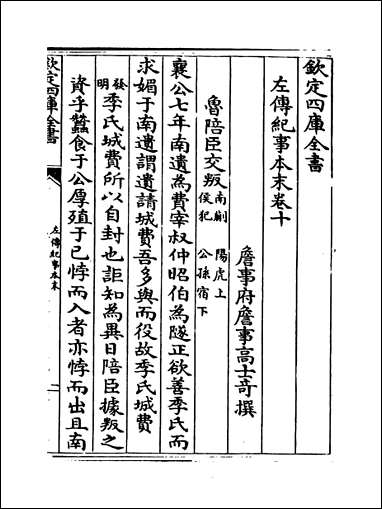 欽定四庫全書
左傳紀事本末卷十
詹事府詹事高士奇撰
魯陪臣交叛南蒯 陽虎上
侯犯 公孫宿下
襄公七年南遺為費宰叔仲昭伯為隧正欲善季氏而
求媚于南遺謂遺請城費吾多與而役故季氏城費
發明季氏城費所以自封也詎知為異日陪臣據叛之
資乎蠶食于公厚殖于已悖而入者亦悖而出且南
欽定四庫全書
左傳紀事本末